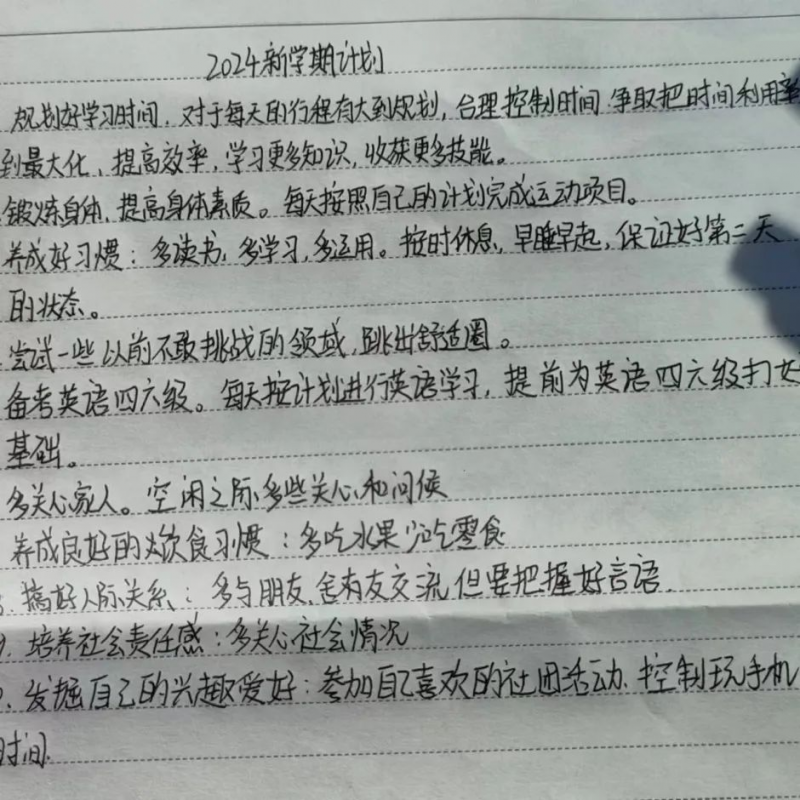 2024新学期计划
规划好学习时间，对于每天的行程有大到规划，合理控制时间.争取把时间利用率
到最大化，提高效率，学习更多知识，收获更多技能。
锻炼身体，提高身体素质。每天按照自己的计划完成运动项目。
养成好习惯：多读书，多学习，多运用。按时休息，早睡早起，保证好第二天
的状态。
尝试一些以前不敢挑战的领域，跳出舒适圈。
备考英语四六级。每天按计划进行英语学习，提前为英语四六级打好
基础。
多关心家人。空闲之际多些关心和问候
养成良好的饮食习惯：多吃水果少吃零食
搞好人际关系：多与朋友、舍友交流，但要把握好言语.
9.培养社会责任感：多关心社会情况
发掘自己的兴趣爱好：参加自己喜欢的社团活动.控制玩手机
时间.